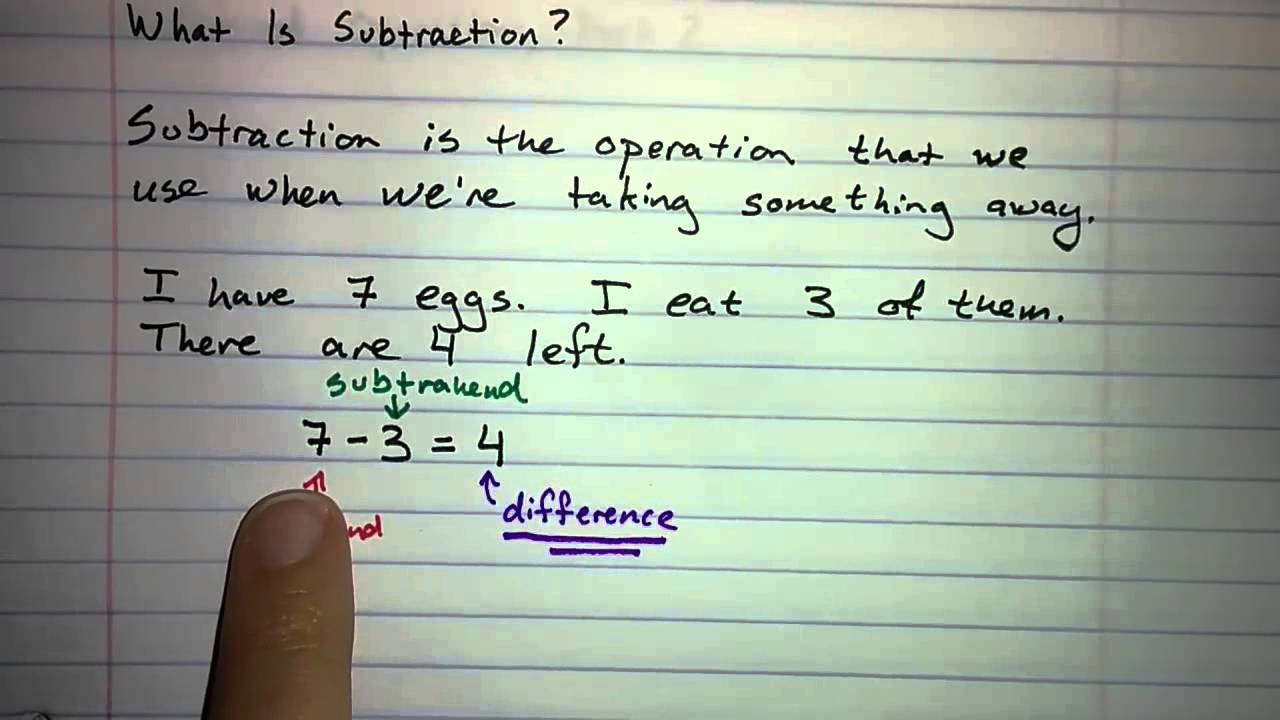 What Is Subtraction?
Subtraction is the operation that we
use when we're taking something away.
I have 7 eggs. I eat 3 of them.
There are 4 left.
subtrahend
7 - 3 = 4
difference